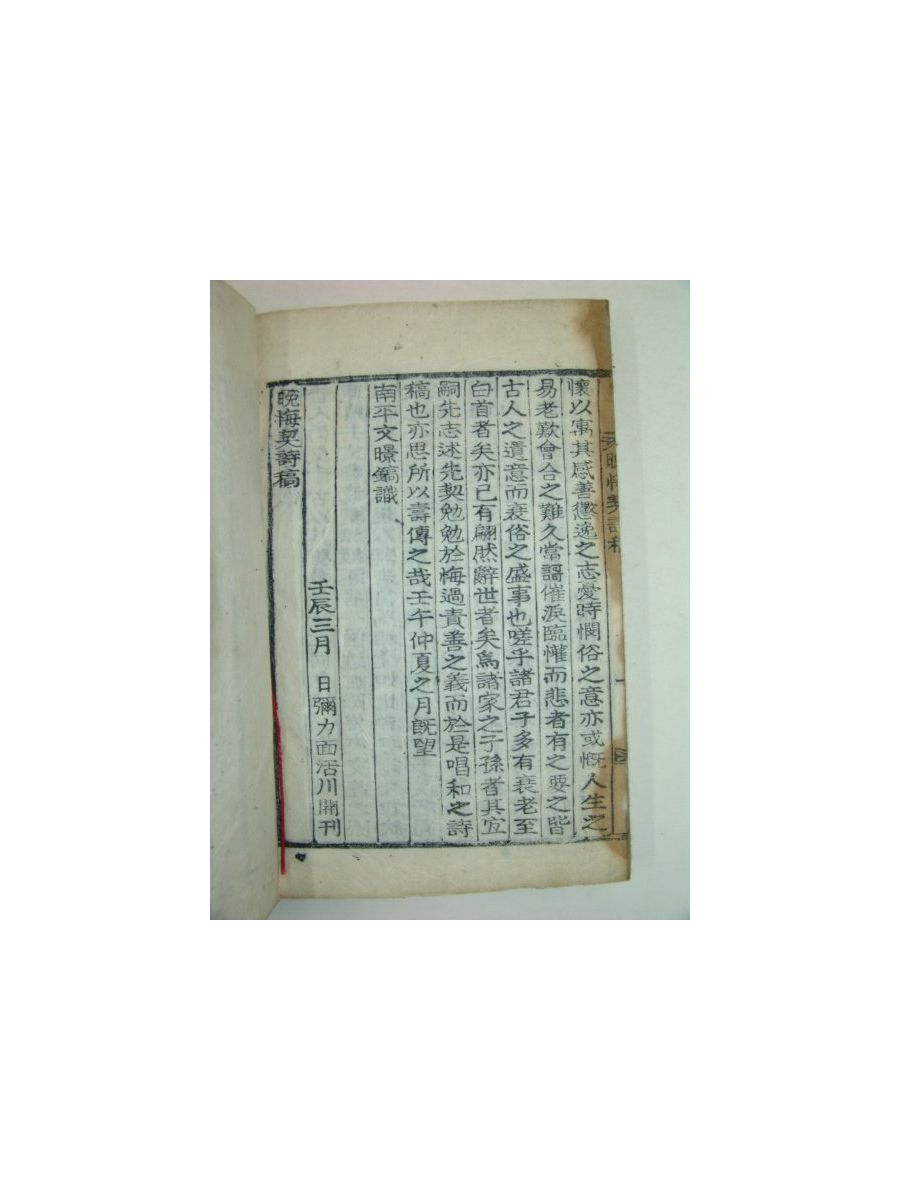 懷以寓其感善懲逸之志憂時憫俗之意亦或慨人生之
易老歎會合之難久當謌催淚臨懽而悲者有之要之皆
古人之遺意而衰俗之盛事也嗟乎諸君子多有衰老至
白首者矣亦已有翩然辭世者矣爲諸家之子孫者其宜
嗣先志述先契勉勉於悔過責善之義而於是唱和之詩
稿也亦思所以壽傳之哉壬午仲夏之月旣望
南平文暻鎬識
壬辰三月 日彌力面活川開刊
晩悔契詩稿